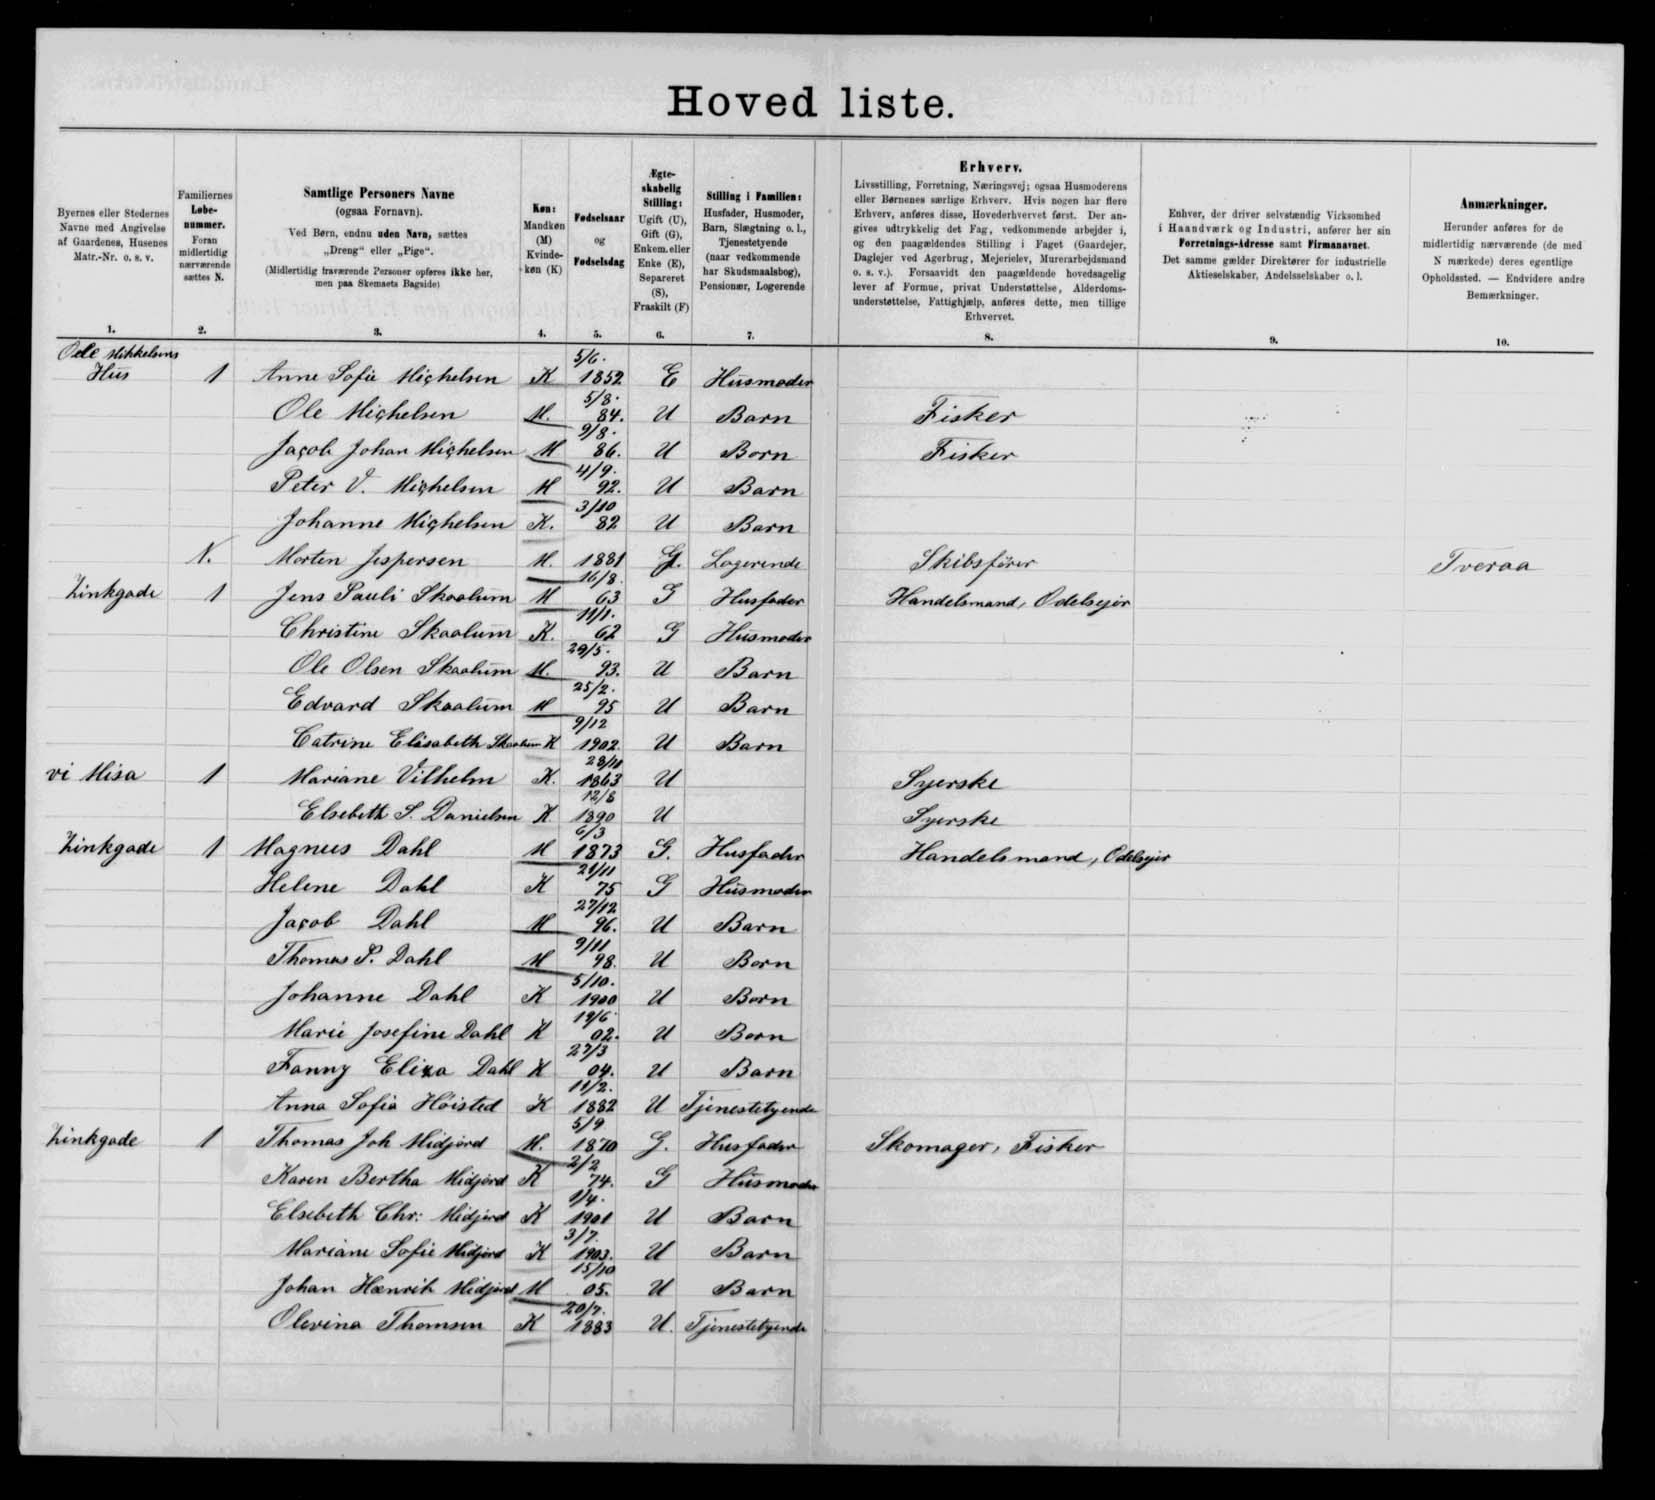 Hoved liste.
Byernes eller Stedernes
Navne med Angivelse
af Gaardenes, Husenes
Matr.-Nr. o. s. v.
1.
Familiernes
Løbe-
nummer.
Foran
midlertidig
nærværende
sættes N.
2.
Samtlige Personers Navne
(ogsaa Fornavn).
Ved Børn, endnu uden Navn, sættes
„Dreng“ eller „Pige“.
(Midlertidig fraværende Personer opføres ikke her,
men paa Skemaets Bagside)
3.
Køn:
Mandkøn
(M)
Kvinde-
køn (K)
4.
Fødselsaar
og
Fødselsdag
5.
Ægte-
skabelig
Stilling:
Ugift (U),
Gift (G),
Enkem. eller
Enke (E),
Separeret
(S),
Fraskilt (F)
6.
Stilling i Familien:
Husfader, Husmoder,
Barn, Slægtning o. l.,
Tjenestetyende
(naar vedkommende
har Skudsmaalsbog),
Pensionær, Logerende
7.
Erhverv.
Livsstilling, Forretning, Næringsvej; ogsaa Husmoderens
eller Børnenes særlige Erhverv. Hvis nogen har flere
Erhverv, anføres disse, Hovederhvervet først. Der an-
gives udtrykkelig det Fag, vedkommende arbejder i,
og den paagældendes Stilling i Faget (Gaardejer,
Daglejer ved Agerbrug, Mejerielev, Murerarbejdsmand
o. s. v.). Forsaavidt den paagældende hovedsagelig
lever af Formue, privat Understøttelse, Alderdoms-
understøttelse, Fattighjælp, anføres dette, men tillige
Erhvervet.
8.
Enhver, der driver selvstændig Virksomhed
i Haandværk og Industri, anfører her sin
Forretnings-Adresse samt Firmanavnet.
Det samme gælder Direktører for industrielle
Aktieselskaber, Andelsselskaber o. l.
9.
Anmærkninger.
Herunder anføres for de
midlertidig nærværende (de med
N mærkede) deres egentlige
Opholdssted. — Endvidere andre
Bemærkninger.
10.
Ole Mikkelsens
Hus 1 Anne Sofie Michelsen K 5/6. 1852 E Husmoder
Ole Michelsen M. 5/8. 84. U Barn Fisker
Jacob Johan Michelsen M 9/8. 86. U Barn Fisker
Peter V. Michelsen M 4/9. 92. U Barn
Johanne Michelsen K. 3/10 82 U Barn
N. Morten Jespersen M. 1881 G. Logerende Skibsfører Tveraa
Zinkgade 1 Jens Pauli Skaalum M 16/8. 63 G Husfader Handelsmand, Odelsejer
Christine Skaalum K. 11/1. 62 G Husmoder
Ole Olsen Skaalum M. 29/5. 93. U Barn
Edvard Skaalum M 25/2. 95 U Barn
Catrine Elisabeth Skaalum K 9/12 1902 U Barn
vi Misa 1 Mariane Vilhelm K. 28/11 1863 U Syerske
Elsebeth S. Danielsen K. 12/8 1890 U Syerske
Zinkgade 1 Magnus Dahl M 6/3 1873 G. Husfader Handelsmand, Odelsejer
Helene Dahl K 21/11 75 G Husmoder
Jacob Dahl M 27/12 96. U Barn
Thomas P. Dahl M 9/11 98. U Barn
Johanne Dahl K 5/10. 1900 U Barn
Marie Josefine Dahl K 19/6 02. U Barn
Fanny Eliza Dahl K 27/3 04. U Barn
Anna Sofia Höisted K 11/2. 1882 U Tjenestetyende
Zinkgade 1 Thomas Joh Midjord M. 5/9 1870 G. Husfader Skomager, Fisker
Karen Bertha Midjord K 2/2 74. G Husmoder
Elsebeth Chr: Midjord K 1/4. 1901 U Barn
Mariane Sofie Midjord K 3/7. 1903. U Barn
Johan Hænrik Midjord M 15/10 05. U Barn
Olevina Thomsen K 20/7. 1883 U. Tjenestetyende